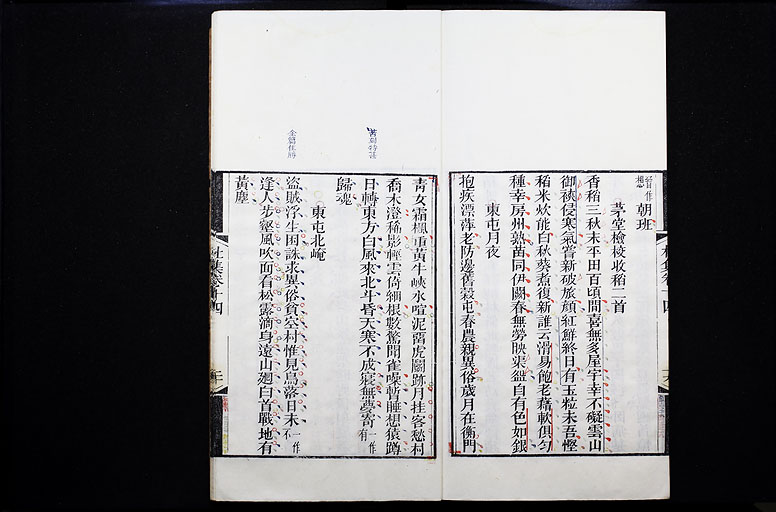 想 朝班
茅堂檢校收稻二首
香稻三秋末平田百頃間喜無多屋宇幸不礙雲山
御裌侵寒氣嘗新破旅顏紅鮮終日有玉粒未吾慳
稻米炊能白秋葵煮復新誰云滑易飽老藉軟俱勻
種幸房州熟苗同伊闕春無勞映渠盌自有色如銀
東屯月夜
抱疾漂萍老防邊舊穀屯春農親異俗歲月在衡門
青女霜楓重黃牛峽水喧泥留虎鬬跡月挂客愁村
喬木澄稀影輕雲倚細根數驚聞雀噪暫睡想猿蹲
日轉東方白風來北斗昏天寒不成寢無夢寄一作有
歸魂
東屯北崦
盜賊浮生困誅求異俗貧空村惟見鳥落日未一作不
逢人步壑風吹面看松露滴身遠山迴白首戰地有
黃塵
杜集卷十四